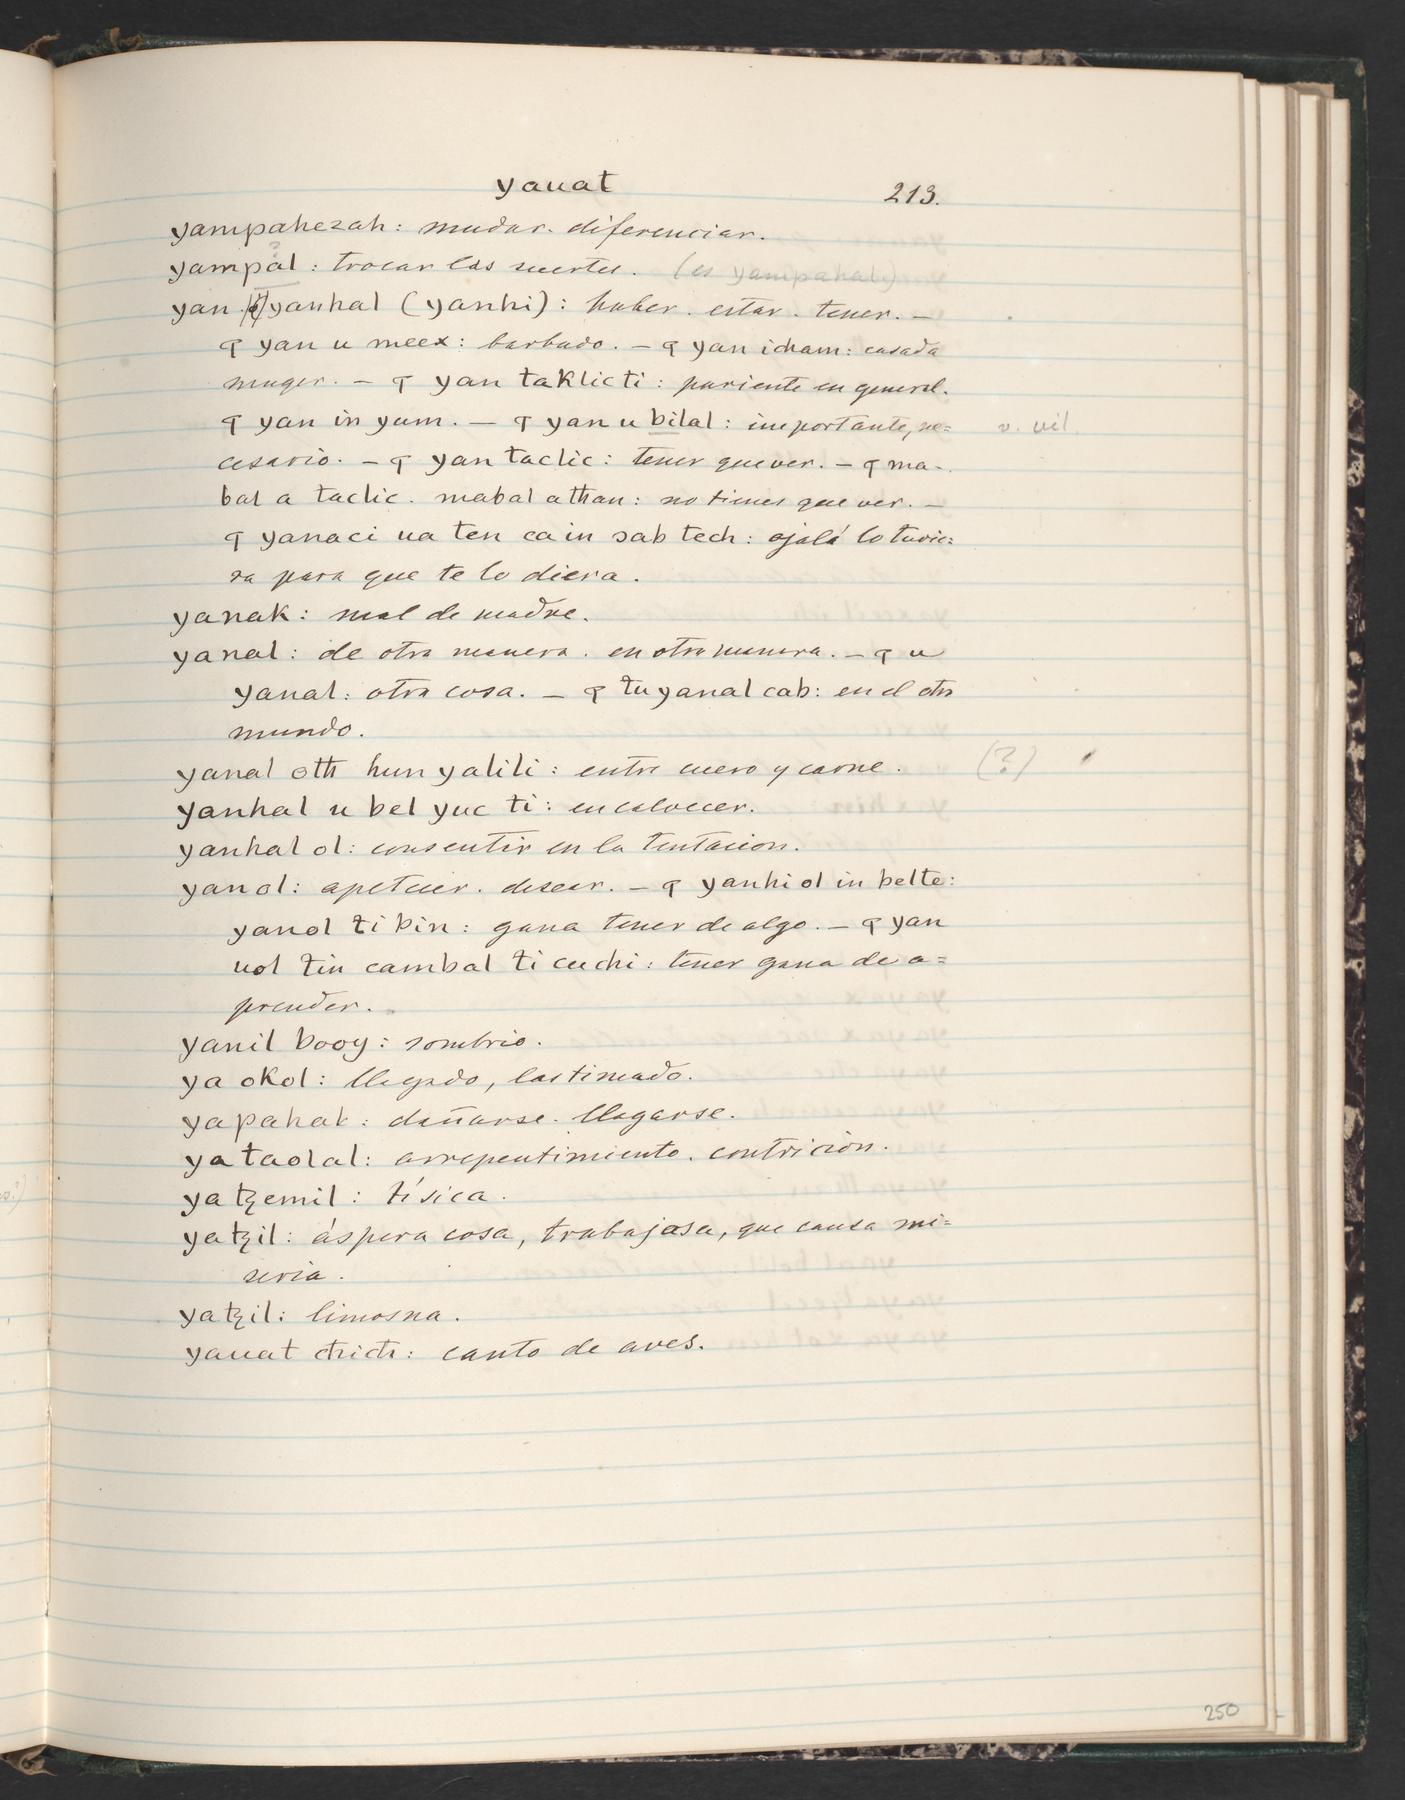 yauat 213.
yampahezah: mudar. diferenciar.
?
yampal: trocar las suertes. (es yampahal)
yan. yanhal (yanhi): haber. estar. tener. —
ꟼ yan u meex: barbado. — ꟼ yan icham: casada
muger. — ꟼ yan taklic ti: pariente en general.
ꟼ yan in yum. — ꟼ yan u bilal: importante, ne= v. uil
cesario. — ꟼ yan taclic: tener que ver. — ꟼ ma-
bal a taclic. mabal a than: no tienes que ver. —
ꟼ yanaci ua ten ca in sab tech: ojalá lo tuvie=
ra para que te lo diera.
yanak: mal de madre.
yanal: de otra manera. en otra manera. — ꟼ u
yanal: otra cosa. — ꟼ tu yanal cab: en el otro
mundo.
yanal oth hun yalili: entre cuero y carne. (?)
yanhal u bel yuc ti: encalvecer.
yanhal ol: consentir en la tentacion.
yan ol: apetecer. desear. — ꟼ yanhi ol in belte:
yanol ti bin: gana tener de algo. — ꟼ yan
uol tin cambal ti cuchi: tener gana de a=
prender.
yanil booy: sombrio.
ya okol: llagado, lastimado.
yapahal: dañarse. llagarse.
ya taolal: arrepentimiento. contricion.
ya tꜩemil: tísica.
yatꜩil: áspera cosa, trabajosa, que causa mi=
seria.
yatꜩil: limosna.
yauat chich: canto de aves.
250